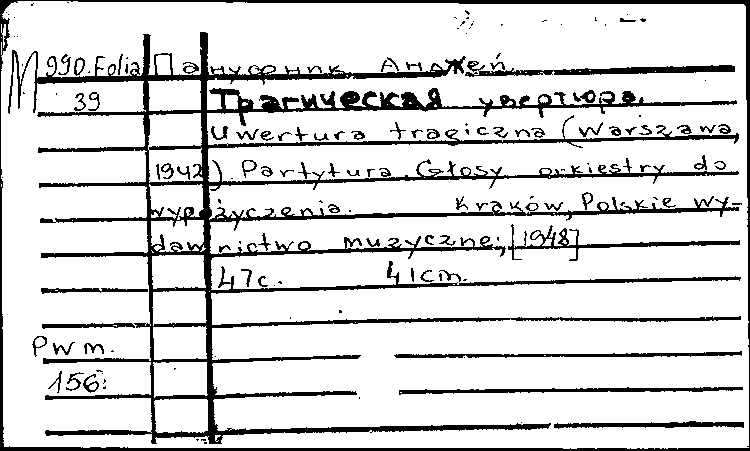 М 990.Folia Пануфник Анджей
39 Трагическая увертюра.
Uwertura tragiczna (Warszawa,
1942). Partytura. Głosy orkiestry do
wypożyczenia. Kraków, Polskie wy=
dawnictwo muzyczne, [1948]
47c. 41cm.
Pwm.
156.